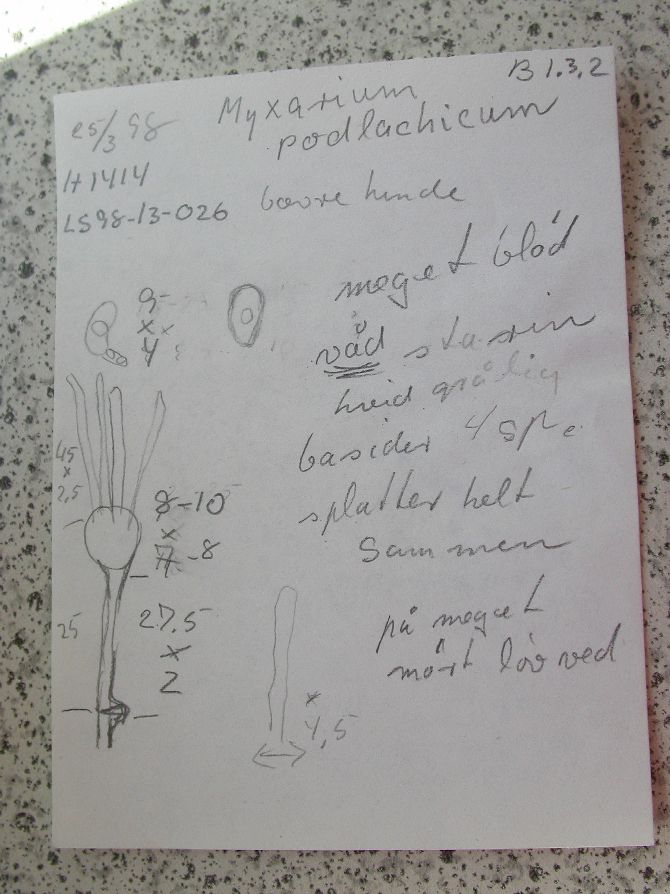 B 1.3.2
25/3 98 Myxarium
podlachicum
H1414
LS98-13-026
bævre hinde
meget blöd
våd
hvid grålig
basider 4 spr
splatter helt
sammen
på meget
mört löv ved
9
x
4
45
x
2,5
8-10
x
7-8
25
27,5
x
2
x
4,5